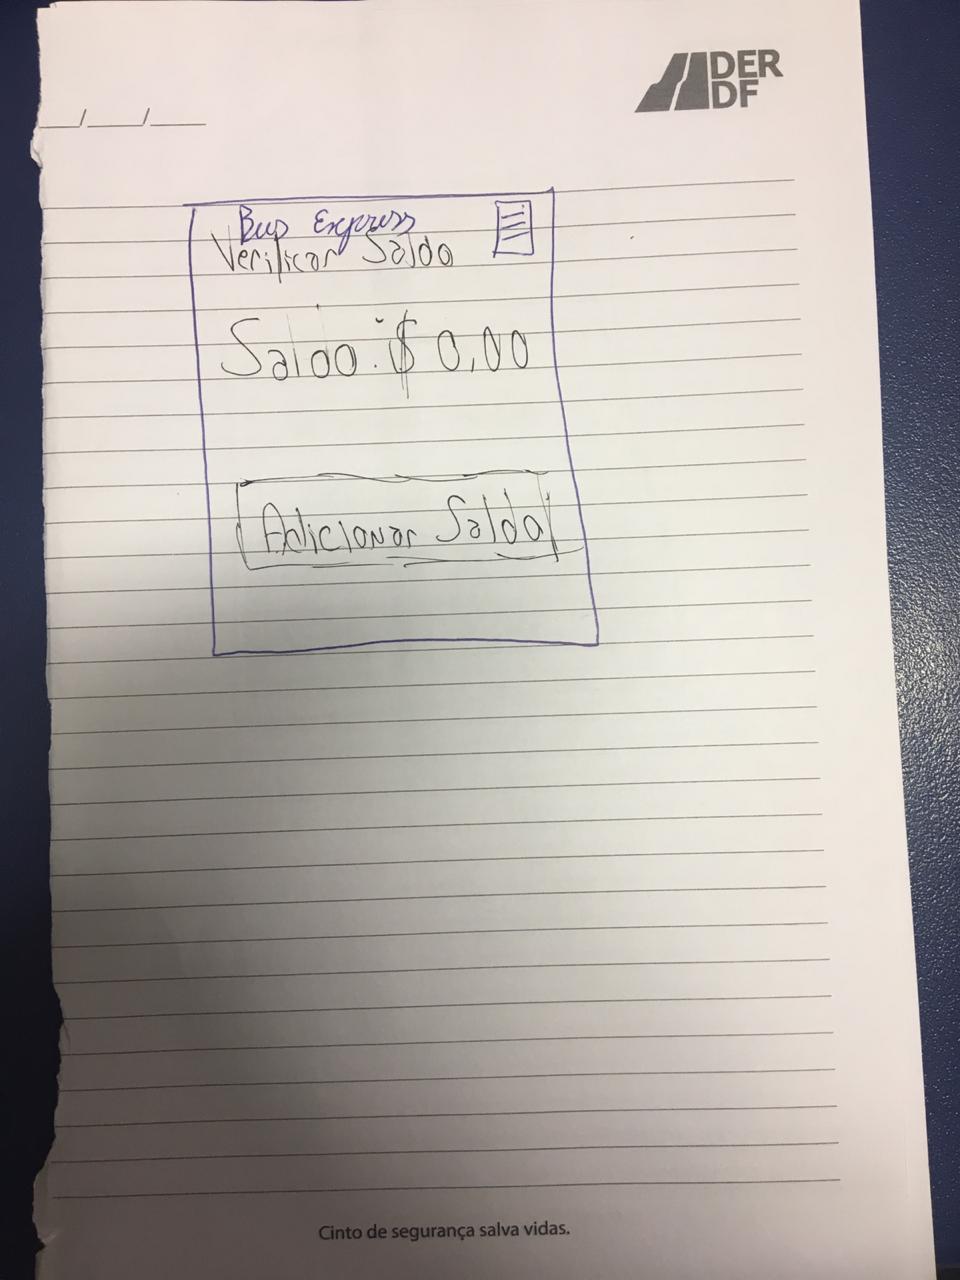 DER
DF
__/__/__
Bus Express
Verificar Saldo
Saldo: $ 0,00
Adicionar Saldo
Cinto de segurança salva vidas.